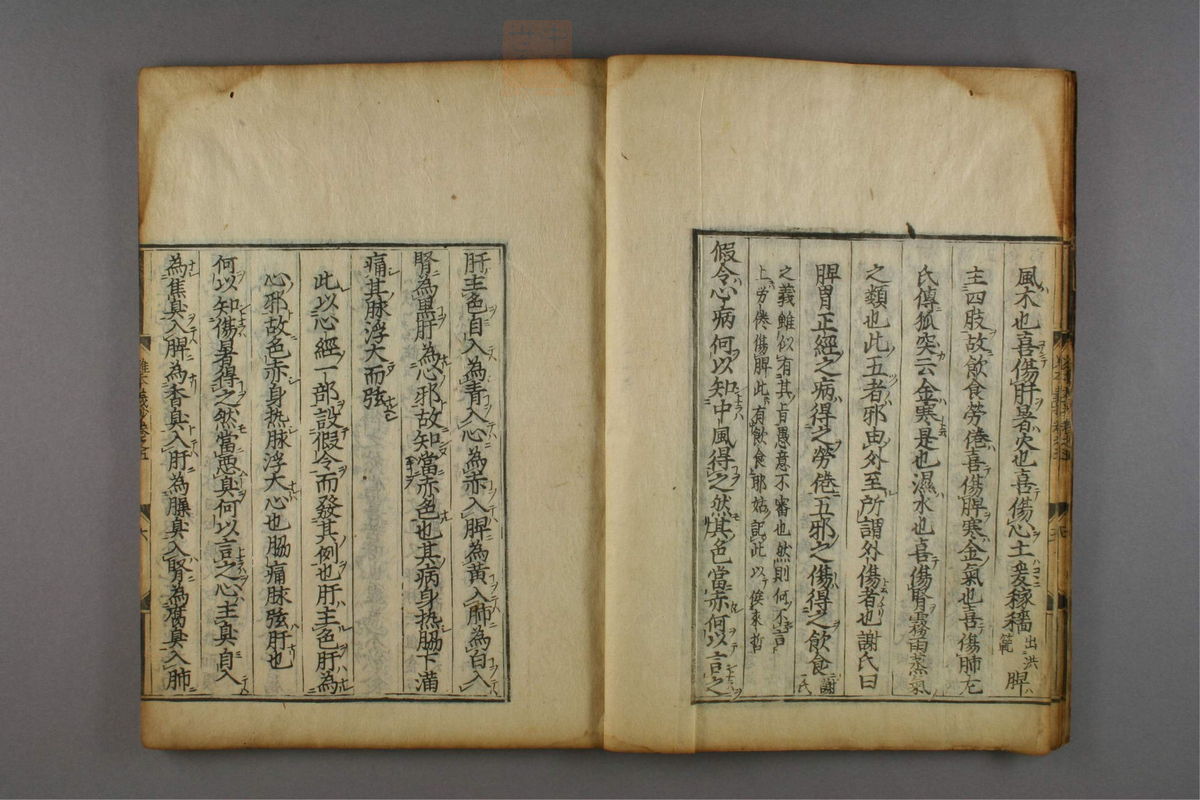 風木也喜傷肝暑火也喜傷心土爰稼穡出洪範脾
主四肢故飲食勞倦喜傷脾寒金氣也喜傷肺左
氏傳狐突云金寒是也濕水也喜傷腎霧雨蒸氣
之類也此五者邪由外至所謂外傷者也謝氏曰
脾胃正經之病得之勞倦五邪之傷得之飲食謝氏
之義雖似有其旨愚意不審也然則何不言
上勞倦傷脾此有飲食耶姑記此以俟來哲
假令心病何以知中風得之然其色當赤何以言之
肝主色自入為青入心為赤入脾為黃入肺為白入
腎為黑肝為心邪故知當赤色也其病身热脇下滿
痛其脉浮大而弦
此以心經一部設假令而發其例也肝主色肝為
心邪故色赤身热脉浮大心也脇痛脉弦肝也
何以知傷暑得之然當惡臭何以言之心主臭自入
為焦臭入脾為香臭入肝為臊臭入腎為腐臭入肺